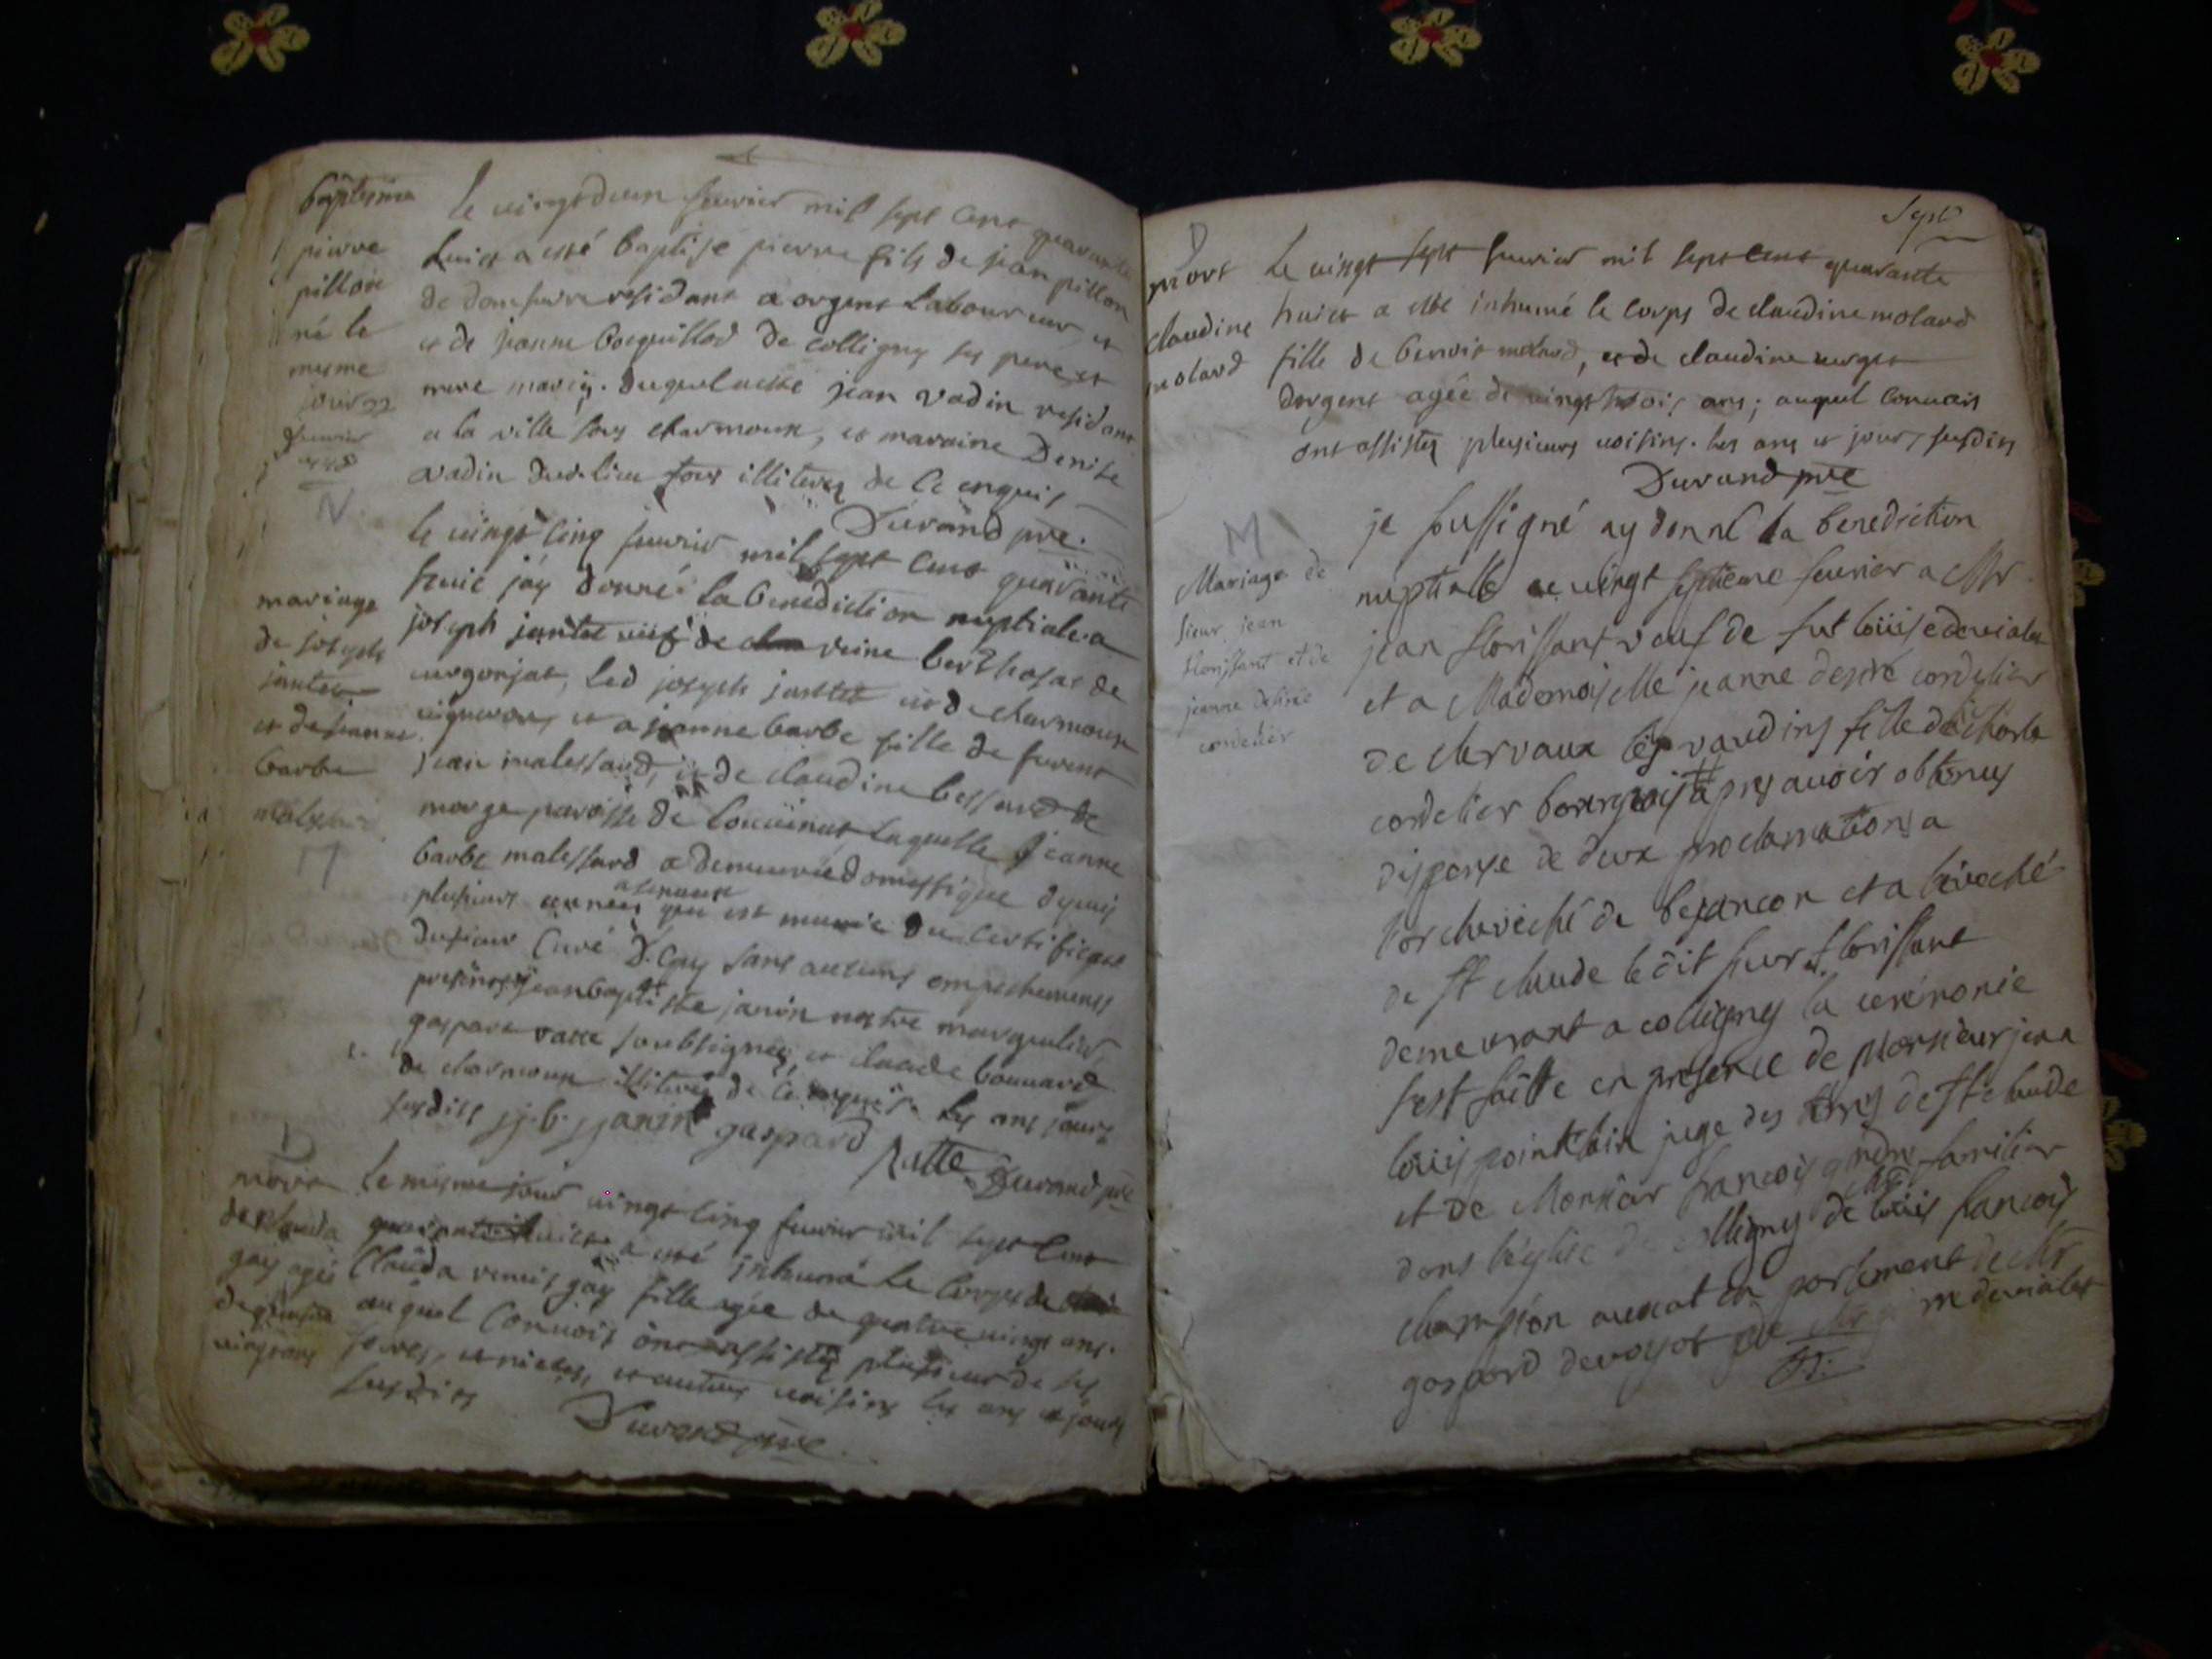 baptesme
pierre
pillon
né le
mesme
jour
feuvrier
1748
N
le vingt d'un feuvrier mil sept cent quarante
huict a esté baptisé pierre fils de jean pillon
de domsurre residant a orgent laboureur et
et de jeanne bocquillod de colligny ses pere et
mere mariés. duquel a esté jean vadin residant
a la ville sous charmoux, et maraine Denise
vadin dud. lieu tous illiterés de ce enquis
Durand pre.
mariage
de joseph
jantet
et de jeanne
barbe
M
le vingt cinq feuvrier mil sept cent quarante
huic j'ay donné la benediction nuptiale a
joseph jantet veuf de reine berthosat de
led joseph jantet et de charmoux
vigneron, et a jeanne barbe fille de furent
jean malessard, et de claudine bessard de
morge paroisse de laquelle jeanne
barbe malessard a demeuré domestique depuis
plusieurs années qui est munie du certificat
du sieur Curé sans aucuns empechements
presents jean baptiste janin nostre marguilier
gaspard ratte soubsignés, et claude bouuard
de charmoux illiterés de ce enquis. les ans jours
susdits j. b. janin gaspard Ratte. Durand pre
D
mort
de clauda
gay agée
de quatre
vingt ans
Le mesme jour vingt cinq feuvrier mil sept cent
quarante huict a esté inhumé le corps de
Clauda gay fille agée de quatre vingt ans.
auquel convois ont assistés plusieurs de ses
et nieces, et autres voisins les ans et jours
susdits Durand pre.
Sept
D
mort
claudine
molard
Le vingt sept feuvrier mil sept cent quarante
huict a esté inhumé le corps de claudine molard
fille de benoit molard, et de claudine
dorgent agée de vingt trois ans; auquel convais
ont assistés plusieurs voisins. les ans et jours susdits
Durand pre
M
Mariage de
sieur jean
florissant et de
jeanne desiré
cordelier
je soussigné ay donné la benediction
nuptialle ce vingt septieme feurier a Mr
jean florissant veuf de fut loüise deviales
et a Mademoiselle jeanne desiré cordelier
de clervaux les vaudins fille de charle
cordelier bourgeois apres auoir obtenus
dispense de deux proclamations a
l'archeveché de besancon et a l'évêché
de st claude le dit sieur florissant
demeurant a colligny la ceremonie
s'est faitte en presence de Monsieur jean
loüis juge des terres de st claude
et de Monsieur francois familier
dans l'église de colligny de loüis francois
champion avocat en parlement de Mr
gaspard devoyot pre m deviales